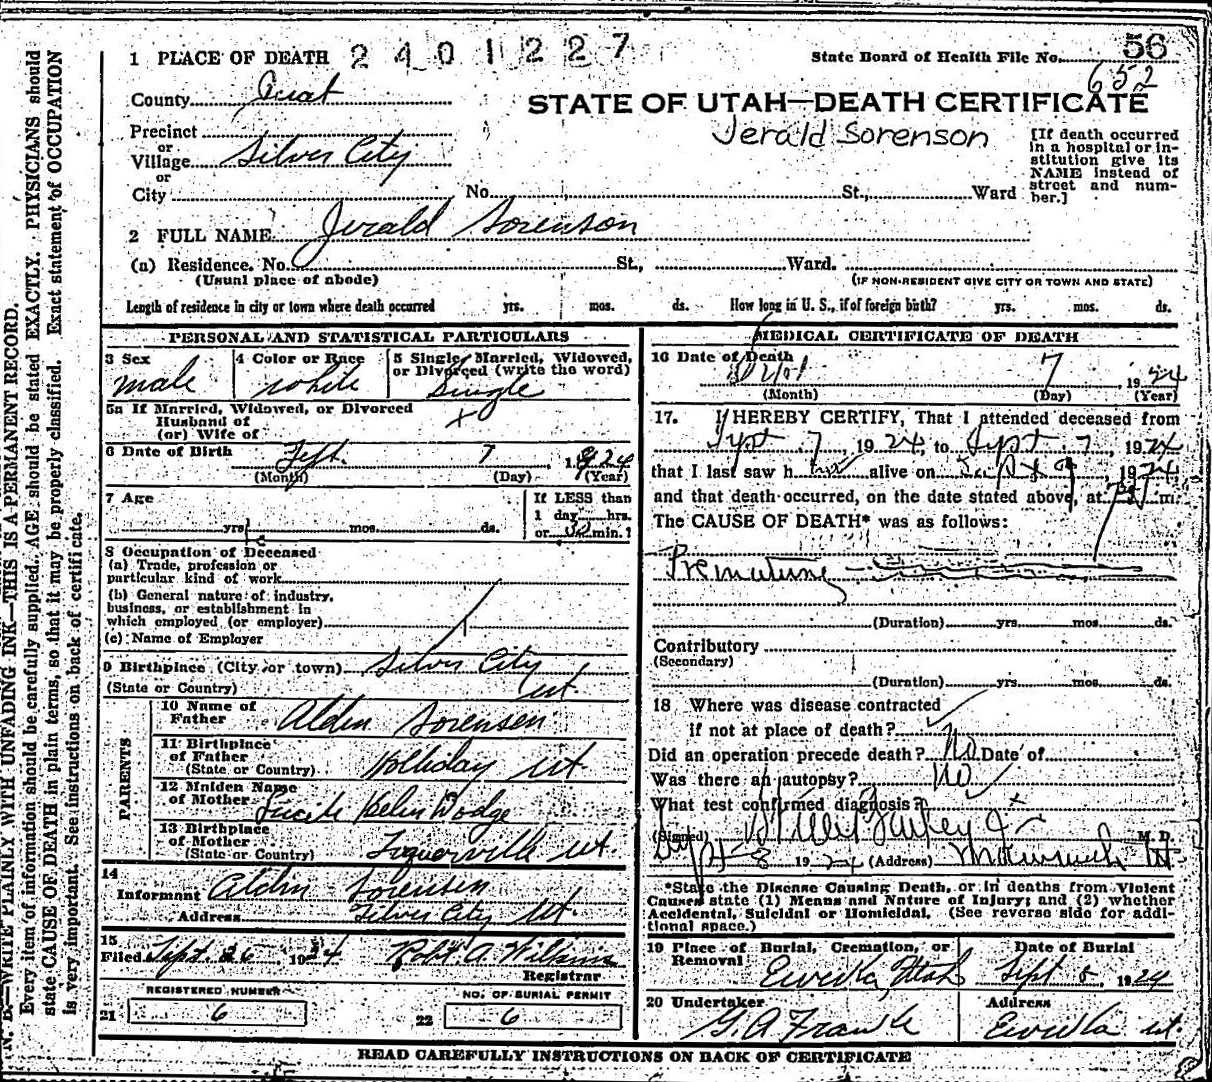 1 PLACE OF DEATH 2401227 State Board of Health File No. 56
652
County
STATE OF UTAH—DEATH CERTIFICATE
Jerald Sorenson
Precinct
or
Village Silver City
or
City No. St., Ward
[If death occurred
in a hospital or in-
stitution give its
NAME instead of
street and num-
ber.]
2 FULL NAME Jerald Sorenson
(a) Residence. No. St., Ward.
(Usual place of abode) (IF NON-RESIDENT GIVE CITY OR TOWN AND STATE)
Length of residence in city or town where death occurred yrs. mos. ds. How long in U. S., if of foreign birth? yrs. mos. ds.
PERSONAL AND STATISTICAL PARTICULARS
3 Sex
male
4 Color or Race
white
5 Single, Married, Widowed,
or Divorced (write the word)
Single
5a If Married, Widowed, or Divorced
Husband of
(or) Wife of
6 Date of Birth Sept. 7, 1924
(Month) (Day) (Year)
7 Age
yrs. mos. ds.
If LESS than
1 day hrs.
or min.?
8 Occupation of Deceased
(a) Trade, profession or
particular kind of work
(b) General nature of industry,
business, or establishment in
which employed (or employer)
(c) Name of Employer
9 Birthplace (City or town) Silver City
(State or Country) Ut.
PARENTS
10 Name of
Father Aldin Sorensen
11 Birthplace
of Father
(State or Country) Holliday Ut
12 Maiden Name
of Mother Lucile Helen Dodge
13 Birthplace
of Mother
(State or Country) Toquerville Ut.
14
Informant Aldin Sorensen
Address Silver City Ut.
15
Filed Sept. 26, 1924 Robt. A. Wilkins
Registrar
REGISTERED NUMBER
21 6
NO. OF BURIAL PERMIT
22 6
MEDICAL CERTIFICATE OF DEATH
16 Date of Death
Sept 7, 1924
(Month) (Day) (Year)
17. I HEREBY CERTIFY, That I attended deceased from
Sept 7, 1924, to Sept 7, 1924
that I last saw him alive on Sept 7 1924
and that death occurred, on the date stated above, at m.
The CAUSE OF DEATH* was as follows:
Premature
(Duration) yrs. mos. ds.
Contributory
(Secondary)
(Duration) yrs. mos. ds.
18 Where was disease contracted
if not at place of death?
Did an operation precede death? No Date of
Was there an autopsy? No
What test confirmed diagnosis? x
(Signed) Bailey Jr M. D.
Sept 8 1924 (Address) Mammoth Ut
*State the Disease Causing Death, or in deaths from Violent
Causes state (1) Means and Nature of Injury; and (2) whether
Accidental, Suicidal or Homicidal. (See reverse side for addi-
tional space.)
19 Place of Burial, Cremation, or
Removal
Eureka, Utah
Date of Burial
Sept 8, 1924
20 Undertaker
G. A. Franke
Address
Eureka Ut.
READ CAREFULLY INSTRUCTIONS ON BACK OF CERTIFICATE
N. B.—WRITE PLAINLY WITH UNFADING INK—THIS IS A PERMANENT RECORD.
Every item of information should be carefully supplied. AGE should be stated EXACTLY. PHYSICIANS should
state CAUSE OF DEATH in plain terms, so that it may be properly classified. Exact statement of OCCUPATION
is very important. See instructions on back of certificate.